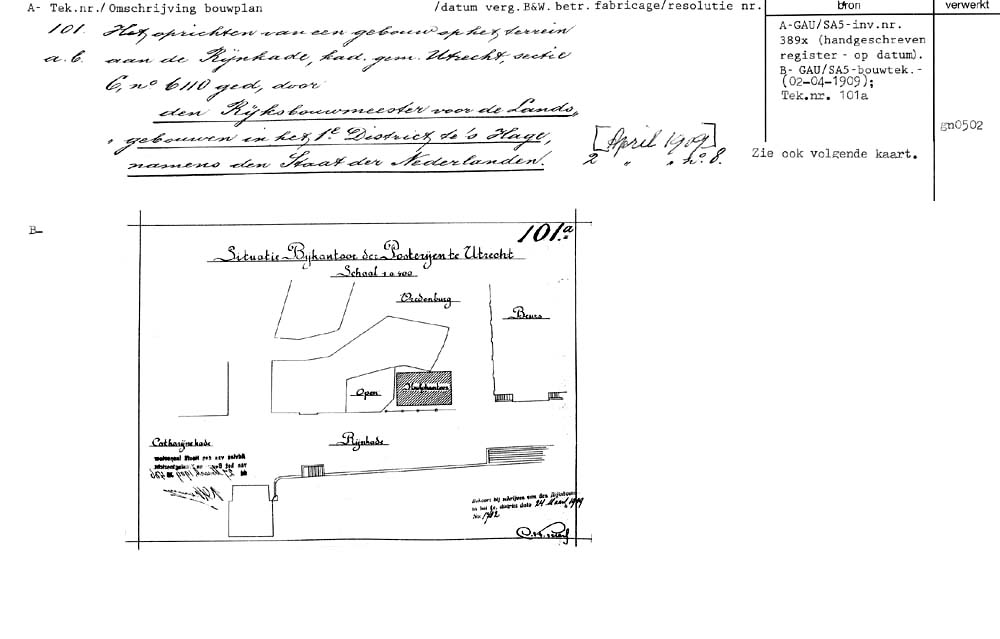 A- Tek.nr./Omschrijving bouwplan /datum verg.B&W.betr.fabricage/resolutie nr. bron verwerkt
101. Het oprichten van een gebouw op het terrein
a.b. aan de Rijnkade, kad. gem. Utrecht, sectie
C, no 6110 ged, door
den Rijksbouwmeester voor de Lands-
gebouwen in het 1e District te 's Hage,
namens den Staat der Nederlanden.
[April 1909]
2 " " no. 8.
A-GAU/SA5-inv.nr.
389x (handgeschreven
register - op datum).
B- GAU/SA5-bouwtek.-
(02-04-1909);
Tek.nr. 101a
gn0502
Zie ook volgende kaart.
B-
101.a
Situatie Bijkantoor der Posterijen te Utrecht
Schaal
Vredenburg
Beurs
Open
Catharijnekade
Rijnkade
24 Maart 1909
No. 1782